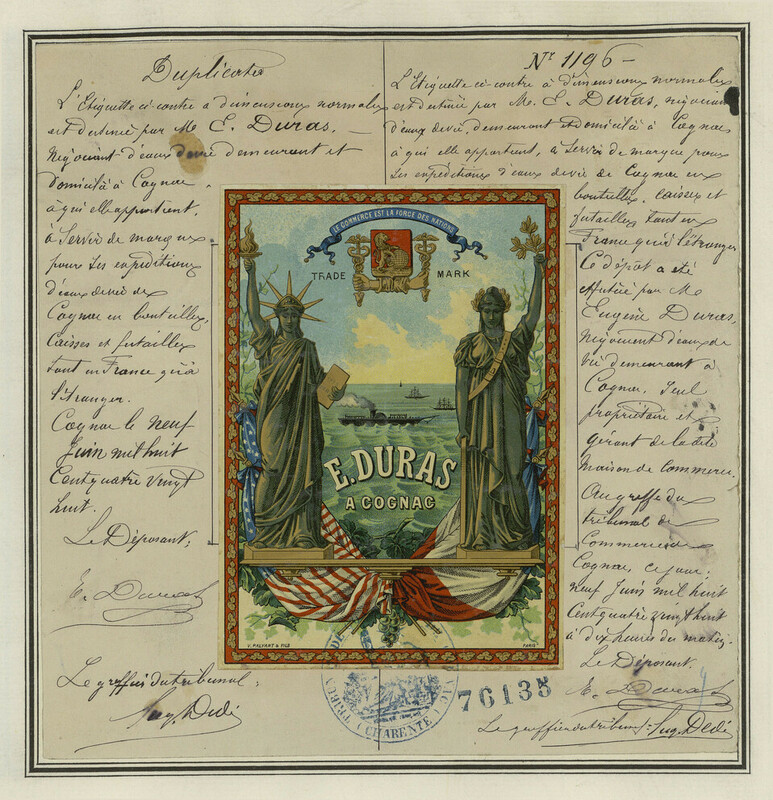 Duplicata
L'Etiquette ci-contre a dimensions normales
est destinée par Mr E. Duras,
Négociant d'eaux devie demeurant et
domicilié à Cognac
à qui elle appartient,
à Servir de marque
pour Ses expéditions
d'eaux devie de
Cognac en bouteilles,
Caisses et futailles
tant en France qu'à
l'étranger.
Cognac le neuf
Juin mil huit
Cent quatre vingt
huit.
Le Déposant,
E. Duras
Le greffier du tribunal,
Aug. Dedé
Nr 1196
L'Etiquette ci-contre à dimensions normales
est destinée par Mr. E. Duras, négociant
d'eaux devie, demeurant et domicilié à Cognac
à qui elle appartient, à Servir de marque pour
Ses expéditions d'eaux devie de Cognac en
bouteilles, Caisses et
futailles tant en
France qu'à l'étranger
Ce dépôt a été
effectué par Mr
Eugène Duras,
Négociant d'eaux de
vie demeurant à
Cognac, Seul
propriétaire et
gérant de la dite
Maison de Commerce.
Au greffe du
tribunal de
Commerce de
Cognac, ce jour,
neuf Juin mil huit
Cent quatre vingt huit
à dix heures du matin.
Le Déposant.
E. Duras
Le greffier du tribunal. Aug. Dedé
LE COMMERCE EST LA FORCE DES NATIONS
TRADE MARK
E. DURAS
A COGNAC
PARIS
CHARENTE
76135